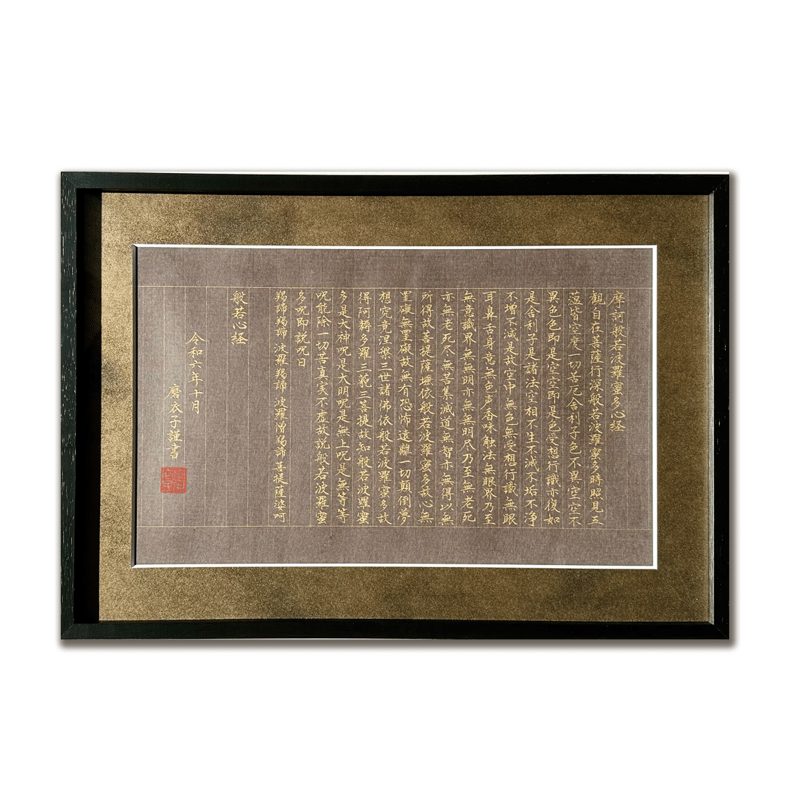 摩訶般若波羅蜜多心経
観自在菩薩行深般若波羅蜜多時照見五
蘊皆空度一切苦厄舎利子色不異空空不
異色色即是空空即是色受想行識亦復如
是舎利子是諸法空相不生不滅不垢不浄
不増不減是故空中無色無受想行識無眼
耳鼻舌身意無色声香味触法無眼界乃至
無意識界無無明亦無無明尽乃至無老死
亦無老死尽無苦集滅道無智亦無得以無
所得故菩提薩埵依般若波羅蜜多故心無
罣礙無罣礙故無有恐怖遠離一切顛倒夢
想究竟涅槃三世諸佛依般若波羅蜜多故
得阿耨多羅三藐三菩提故知般若波羅蜜
多是大神呪是大明呪是無上呪是無等等
呪能除一切苦真実不虚故説般若波羅蜜
多呪即説呪曰
羯諦羯諦 波羅羯諦 波羅僧羯諦 菩提薩婆呵
般若心経
令和六年十月
磨衣子謹書